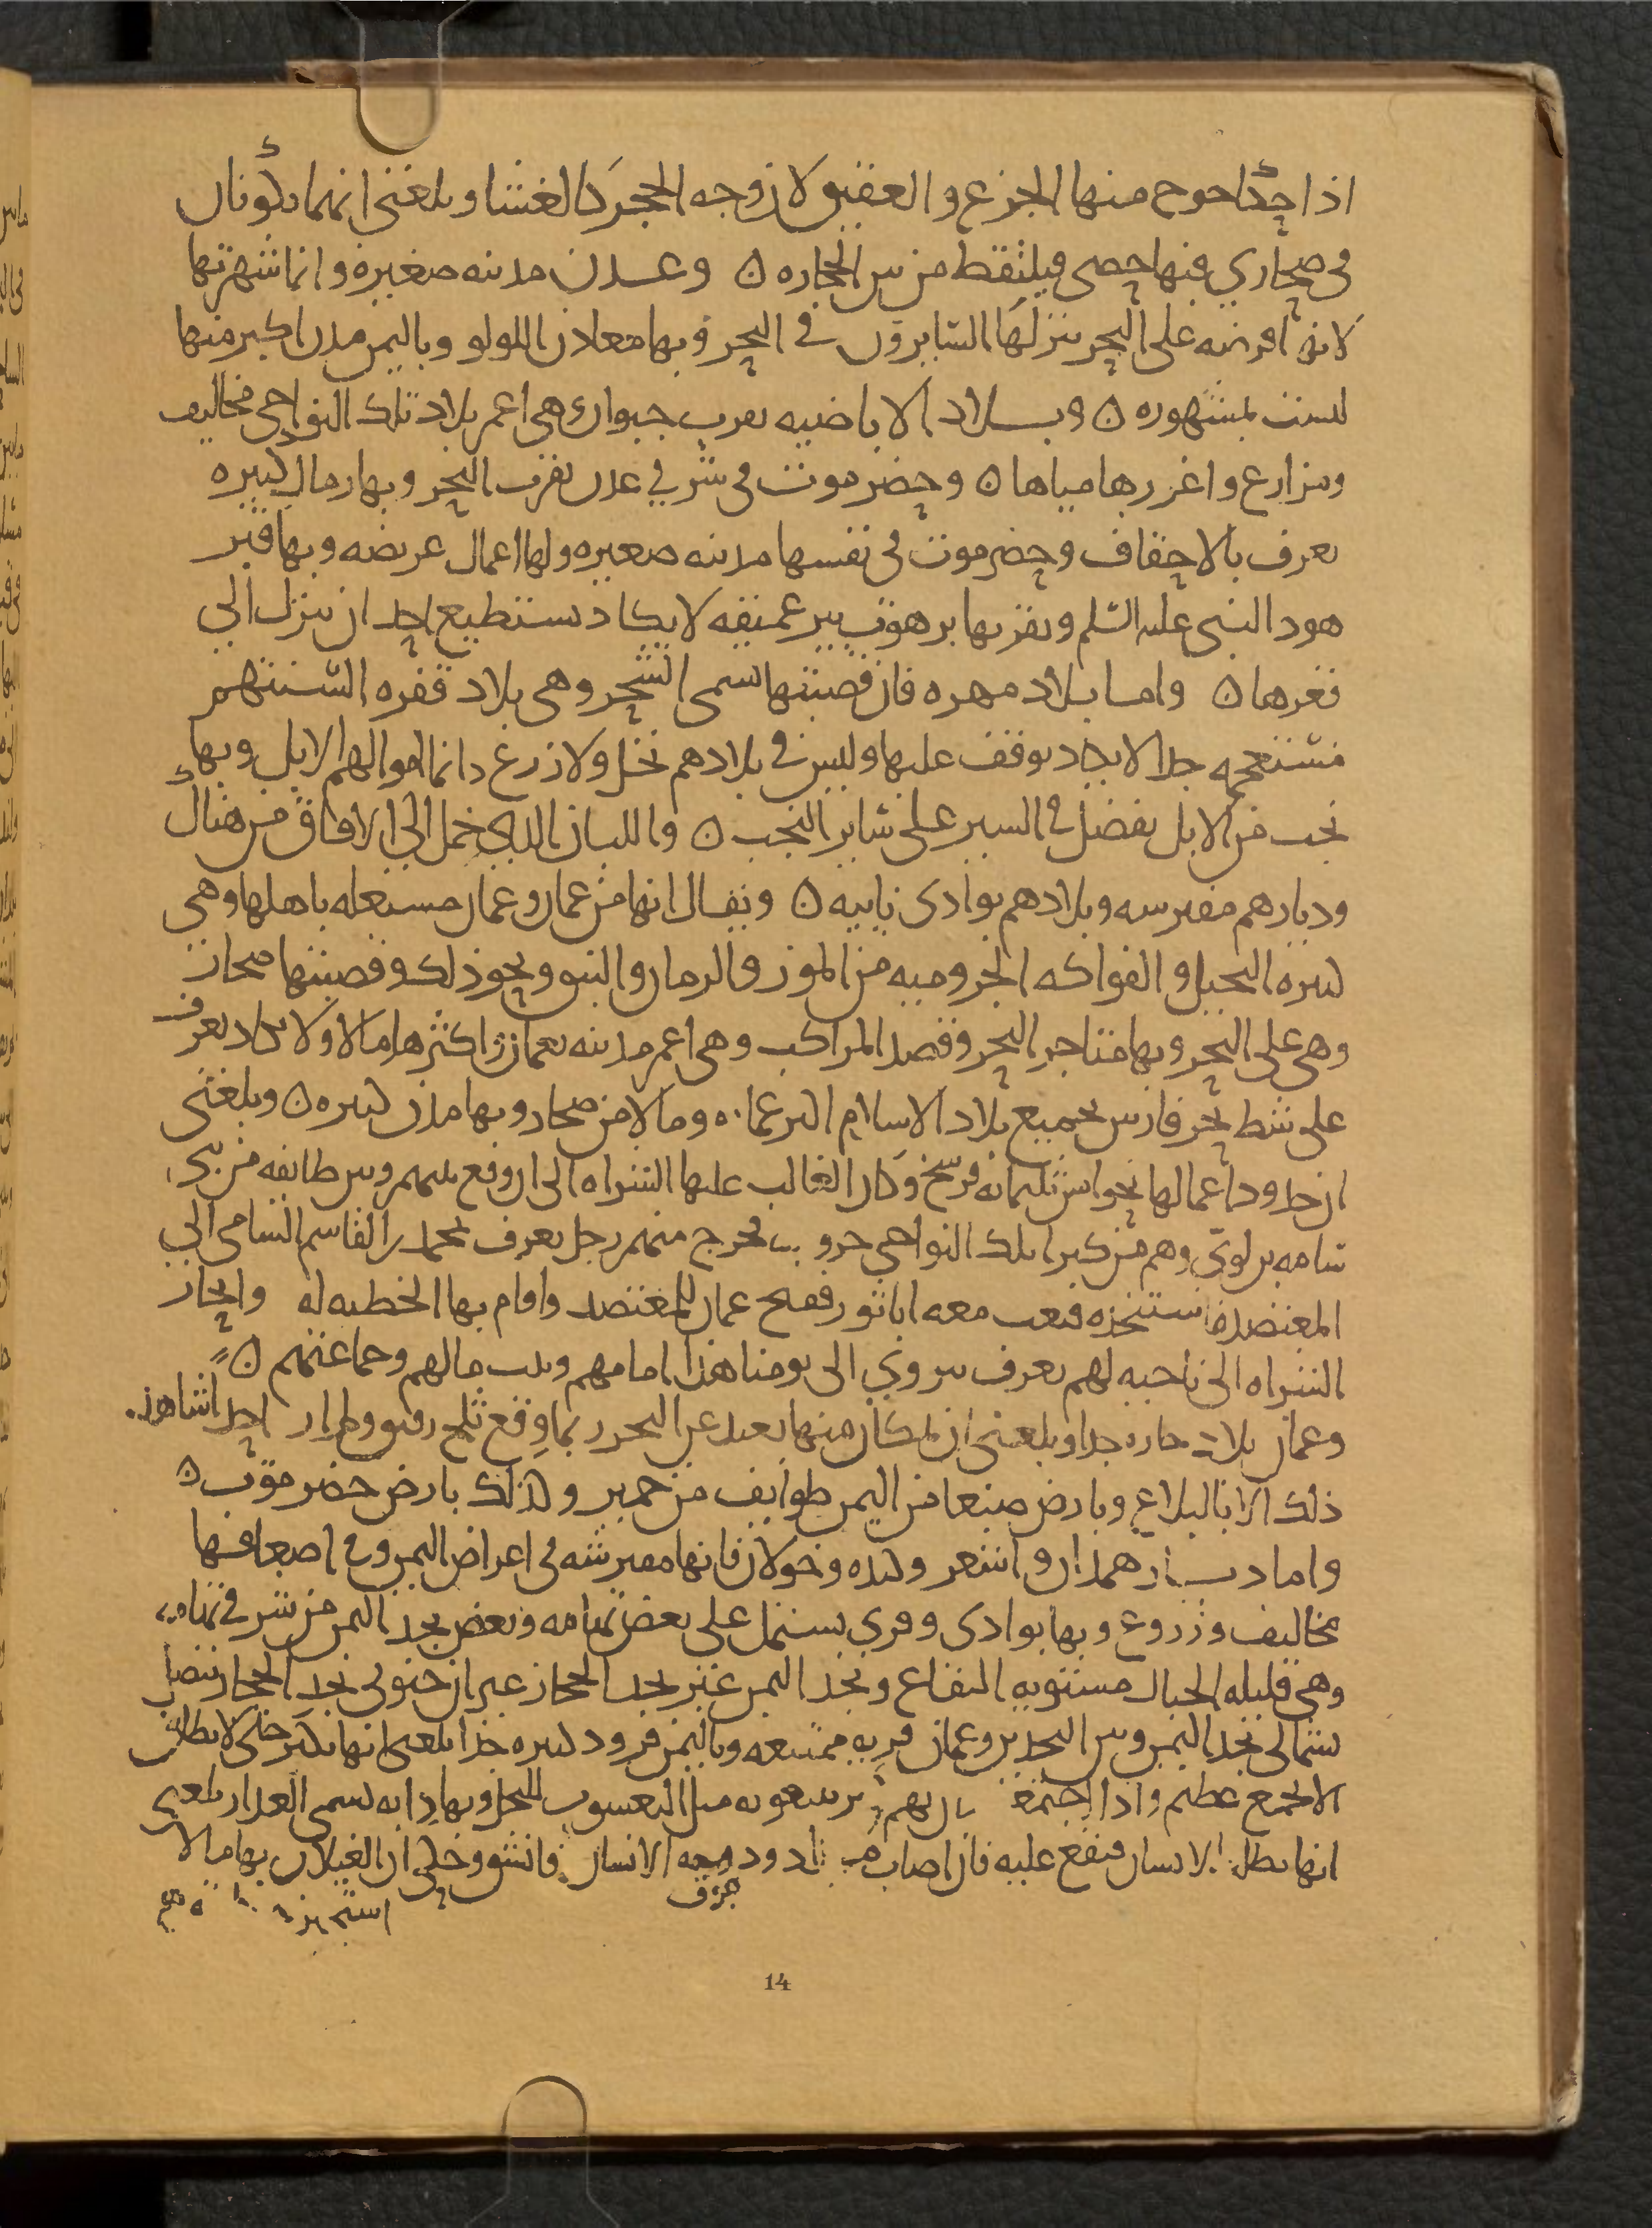 اذا حكا حوح منها الجزع والعقيق لان وجه الحجر كالغشا وبلغنى انهما يكونان
فى صحاري فيها حصى فيلتقط من بين الحجاره ن وعدن مدينه صغيره وانما شهرتها
لانها فرضه على البحر ينزلها السايرون في البحر وبها معادن اللولو وباليمن مدن اكبر منها
ليست بمشهوره ن وبلاد الاباضيه بقرب حيوان هى اعمر بلاد تلك النواحى مخاليف
ومزارع واغزرها مياها ن وحضرموت فى شرقي عدن بقرب البحر وبها رمال كبيره
تعرف بالاحقاف وحضرموت فى نفسها مدينه صغيره ولها اعمال عريضه وبها قبر
هود النبى عليه السلم وبقربها برهوت بير عميقه لا يكاد يستطيع احد ان ينزل الي
قعرها ن واما بلاد مهره فان قصبتها تسمى الشحر وهى بلاد قفره السنتهم
مستعجمه جدا لا يكاد يوقف عليها وليس في بلادهم نخل ولا زرع وانما اموالهم الابل وبها
نجب من الابل تفضل في السير على ساير النجب ن واللبان الذي يحمل الي الافاق من هناك
وديارهم مفترشه وبلادهم بوادى نايه ن ويقال انها من عمان وعمان مستقله باهلها وهى
كبيره النخيل والفواكه الجروميه من الموز والرمان والنبق ونحو ذلك وقصبتها صحار
وهى على البحر وبها متاجر البحر وقصد المراكب وهى اعمر مدينه بعمان واكثرها مالا ولا يكاد يعرف
على شط بحر فارس بجميع بلاد الاسلام اكبر عماره ومالا من صحار وبها مدن كبيره ن وبلغنى
ان حدود اعمالها نحو من ثلثمايه فرسخ وكان الغالب عليها الشراه الى ان وقع بينهم وبين طايفه من بني
سامه بن لوي وهم من كبرا تلك النواحى حروب فخرج منهم رجل يعرف بمحمد بن القاسم السامى الي
المعتضد فاستنجده فبعث معه ابا ثور ففتح عمان للمعتضد واقام بها الخطبه له وانحاز
الشراه الى ناحيه لهم تعرف بنزوي الى يومنا هذا امامهم وبيت مالهم وجماعتهم ن
وعمان بلاد حاره جدا وبلغنى ان بمكان منها بعيد عن البحر ربما وقع ثلج رقيق ولم ار احدا شاهد
ذلك الا بالبلاغ وبارض صنعا من اليمن طوايف من حمير وكذلك بارض حضرموت ن
واما ديار همدان واشعر وكنده وخولان فانها مفترشه فى اعراض اليمن وفى اضعافها
مخاليف وزروع وبها بوادى وقرى تشتمل على بعض تهامه وبعض نجد اليمن من شرقي تهامه
وهى قليله الجبال مستويه البقاع ونجد اليمن غير نجد الحجاز غير ان جنوبى نجد الحجاز تتصل
بشمالى نجد اليمن وبين النجدين وعمان بريه ممتنعه وباليمن قرود كبيره جدا بلغنى انها تكثر حتى لا تطاق
الا بجمع عظيم واذا اجتمعت كان لهم كبير يتبعونه مثل اليعسوب للنحل وبها دابه تسمى العدار بلغني
انها تطلب الانسان فتقع عليه فان اصابت دود جوف الانسان فانشق وحكى ان الغيلان بها ما لا